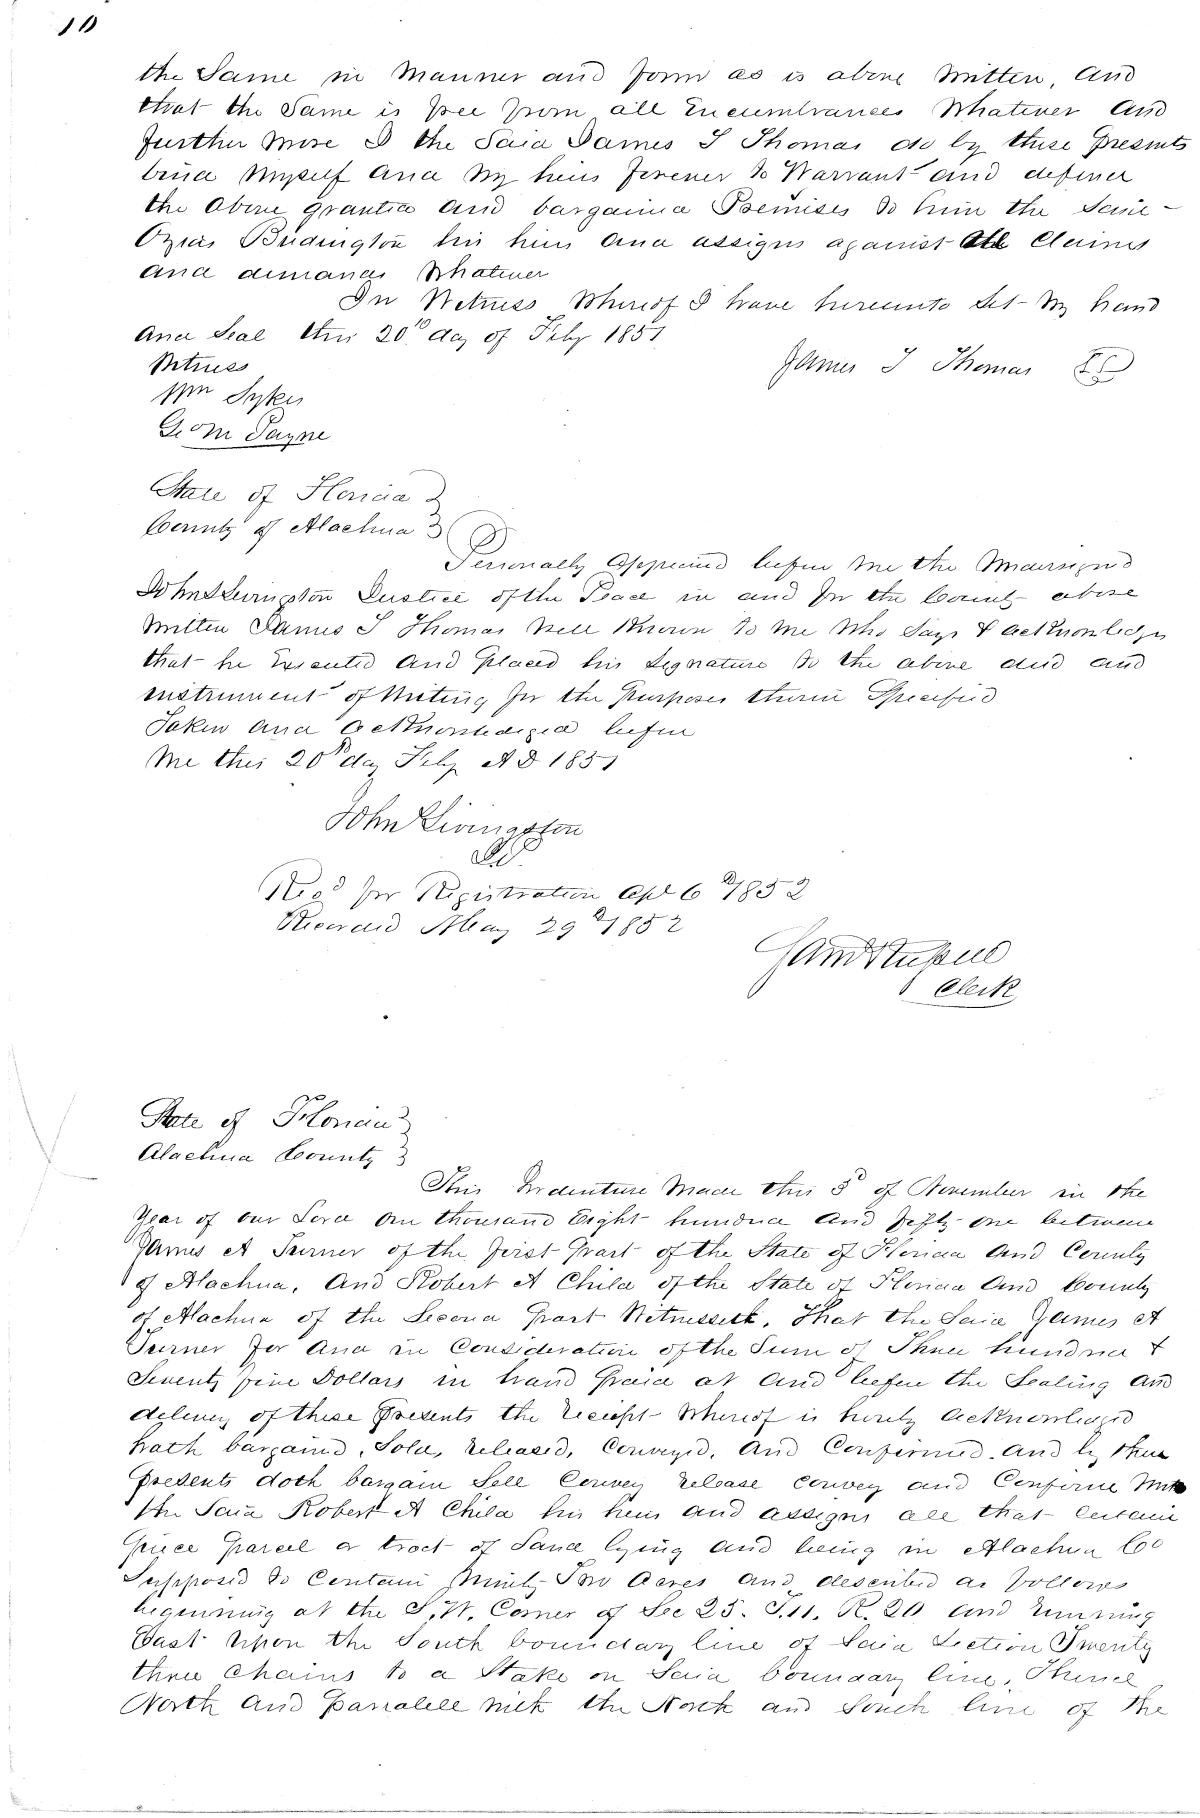 10
the Same in manner and form as is above written, and
that the Same is free from all Encumbrances Whatever and
further more I the Said James T Thomas do by these presents
bind myself and my heirs forever to Warrant and defend
the above granted and bargained Premises to him the Said
Ozias Budington his heirs and assigns against all claims
and demands Whatever
In Witness Whereof I have hereunto Set my hand
and Seal this 20th day of Feby 1851
Witness
James T Thomas LS
Wm Sykes
Geo M Payne
State of Florida
County of Alachua
Personally appeared before me the undersigned
John Livingston Justice of the Peace in and for the County above
written James T Thomas well Known to me who Says & acknowledges
that he Executed and placed his Signature to the above deed and
instrument of writing for the purposes therein Specified
Taken and acknowledged before
me this 20th day Feby A D 1851
John Livingston
JP
Recd for Registration Apl 6th 1852
Recorded May 29th 1852
Clerk
State of Florida
Alachua County
This Indenture made this 3d of November in the
Year of our Lord one thousand Eight hundred and fifty one between
James A Turner of the first part of the State of Florida and County
of Alachua, and Robert A Child of the State of Florida and County
of Alachua of the Second part Witnesseth, That the Said James A
Turner for and in Consideration of the Sum of Three hundred &
Seventy five Dollars in hand paid at and before the Sealing and
delivery of these presents the receipt Whereof is hereby acknowledged
hath bargained, Sold, released, conveyed, and Confirmed and by these
presents doth bargain Sell Convey release convey and Confirm unto
the Said Robert A Child his heirs and assigns all that certain
piece parcel or tract of Land lying and being in Alachua Co
Supposed to Contain Ninety Two acres and described as follows
beginning at the S.W. Corner of Sec 25. T.11. R. 20 and running
East upon the South boundary line of Said Section Twenty
three chains to a Stake on Said boundary line, Thence
North and paralell with the North and South line of the